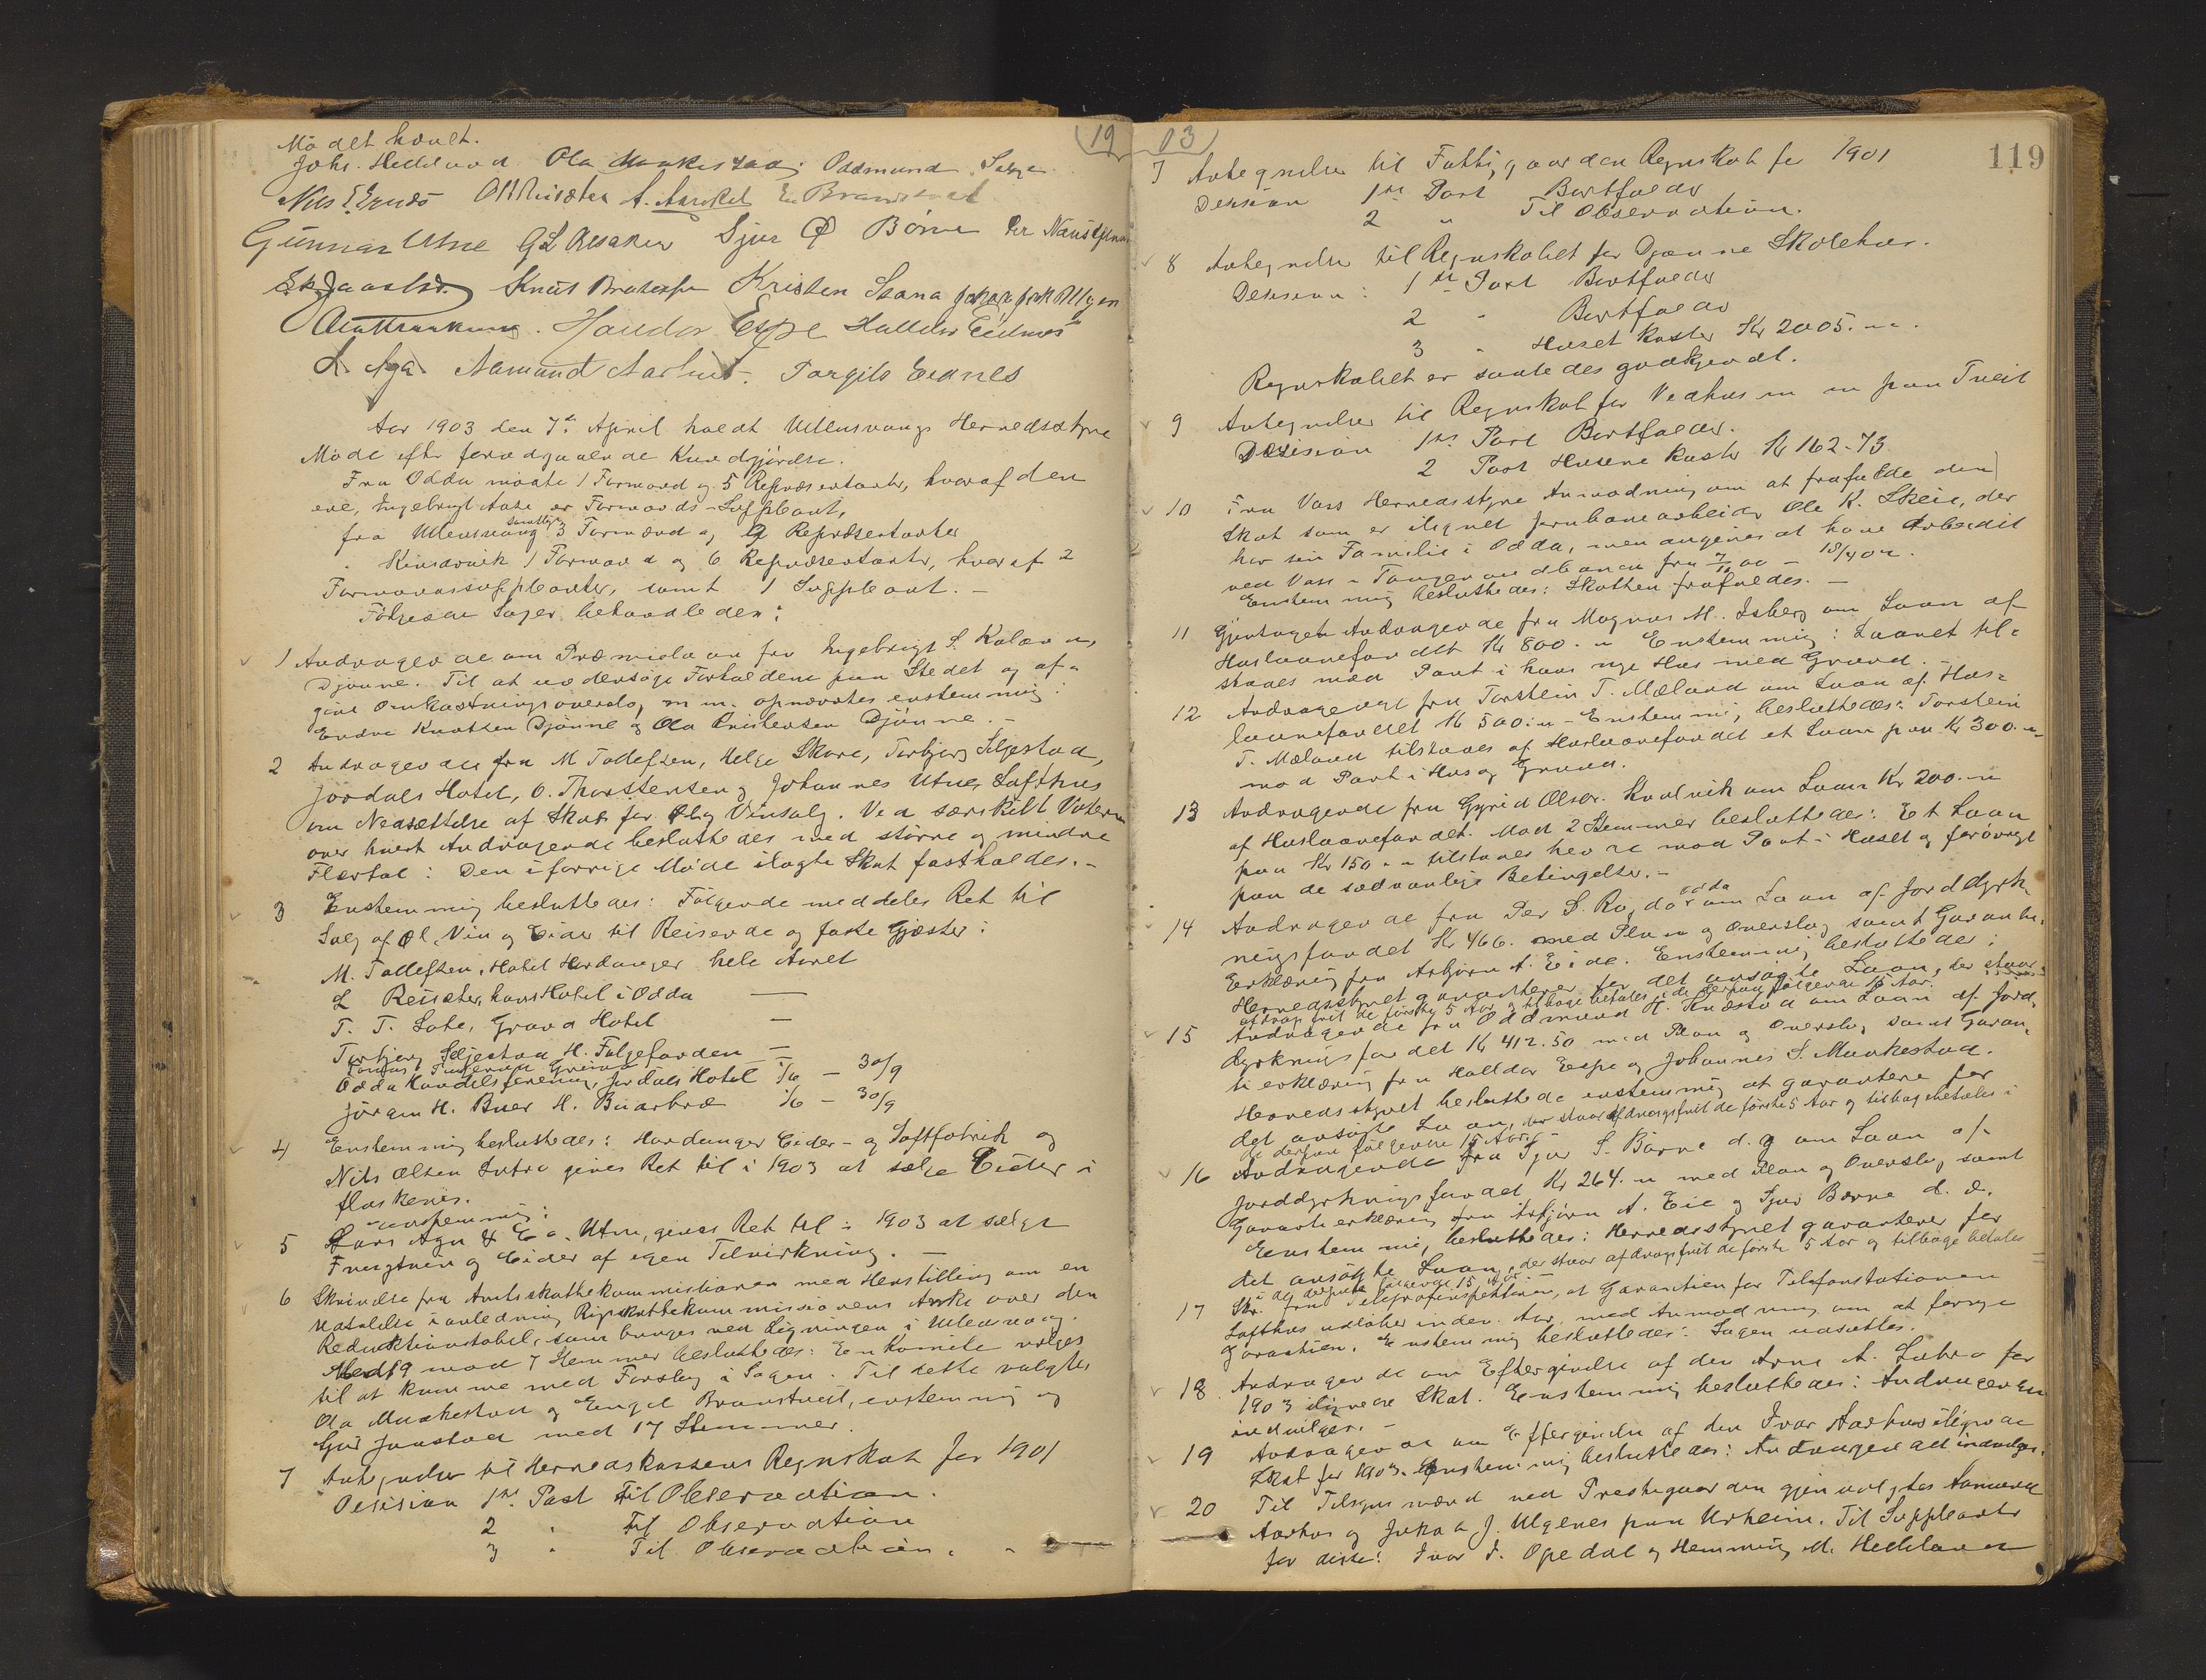 Mødet hævet.
Johs. Helleland Ola Maakestad Oddmund
Nils E Ernes A. Aarekol E. Brandstveit
Gunnar Utne G L Aksaker Sjur Ø Börve Per
Knut Kristen
Haldor Espe Halldor Eidnes
L. Aga. Aamund Aarhus. Torgils Eidnes
19
Aar 1903 den 7de April holdt Ullensvangs Herredsstyre
Møde efter foregaaende Kundgjørelse.
Fra Odda mødte 1 Formand og 5 Repræsentanter, hvoraf den
ene, Ingebrigt Aase er Formands-Suppleant,
fra Ullensvang samtlige 3 Formænd og 9 Repræsentanter
" Kinsarvik 1 Formand og 6 Repræsentanter, hvoraf 2
Formandssuppleanter, samt 1 Suppleant. -
Følgende Sager behandledes:
1 Andragende om Præmielaan for Ingebrigt S.
Djønne. Til at undersøge Forholdene paa Stedet og af-
give Omkostningsoverslag m.m. opnævntes enstemmig:
Endre Knutsen Djønne og Ola Kristensen Djønne. -
2 Andragender fra M Tollefsen, Helge Skare, Torbjørg Seljestad,
Jordals Hotel, O. Thorstensen og Johannes Utne, Lofthus
om Nedsættelse af Skat for Øl og Vinsalg. Ved særskilt Votering
over hvert Andragende besluttedes med større og mindre
Flertal: Den i forrige Møde ilagte Skat fastholdes. -
3 Enstemmig besluttedes: Følgende meddeles Ret til
Salg af Øl, Vin og Cider til Reisende og faste Gjæster:
M. Tollefsen, Hotel Hardanger hele Aaret
L Reisæter, hans Hotel i Odda —
T. T. Lote, Grand Hotel —
Torbjørg Seljestad H. Folgefonden —
Odda Handelsforening, Jordals Hotel 1/6 — 30/9
Jørgen H. Buer H. Buarbræ 1/6 — 30/9
4 Enstemmig besluttedes: Hardanger Cider- og Saftfabrik og
Nils Olsen Lutro gives Ret til i 1903 at sælge Cider i
flaskevis.
enstemmig:
5 Lars Aga & Co. Utne, gives Ret til i 1903 at sælge
Frugtvin og Cider af egen Tilvirkning. —
6 Skrivelse fra Amtsskattekommissionen med Henstilling om en
Udtalelse i anledning Rigsskattekommissionens Anke over den
Reduktionstabel, som bruges ved Ligningen i Ullensvang.
Med 19 mod 7 Stemmer besluttedes: En Komite vælges
til at komme med Forslag i Sagen. Til dette valgtes
Ola Maakestad og Engel Brandstveit, enstemmig og
Jaastad med 17 Stemmer.
7 Antegnelser til Herredskassens Regnskab for 1901
Desision 1ste Post Til Observation.
2 " Til Observation
3 " Til Observation.
03
119
7 Antegnelser til Fattiggaardens Regnskab for 1901
Desision 1ste Post Bortfalder
2 " Til Observation.
8 Antegnelser til Regnskabet for Djønne Skolehus.
Desision: 1ste Post Bortfalder
2 " Bortfalder
3 " Huset koster Kr 2005. "".
Regnskabet er saaledes godkjendt.
9 Antegnelser til Regnskab for Vedhusene paa Tveit
Desision 1ste Post Bortfalder.
2 Post Husene koster Kr 162-73
10 Fra Voss Herredsstyre Anmodning om at frafalde den
Skat som er ilignet Jernbanearbeider Ole K. Skeie, der
har sin Familie i Odda, men angives at have Arbeidet
ved Voss - Taugevandbanen fra
Enstemmig besluttedes: Skatten frafaldes. —
11 Gjentaget Andragende fra Magnus M. Isberg om Laan af
Huslaanefondet Kr 800. " Enstemmig: Laanet til-
staaes mod Pant i hans nye Hus med Grund. -
12 Andragende fra Torstein T. Mæland om Laan af Hus-
laanefondet Kr 500. " - Enstemmig besluttedes: Torstein
T. Mæland tilstaaes af Huslaanefondet et Laan paa Kr 300. "
mod Pant i Hus og Grund.
13 Andragende fra Gyrid Olsdr. Kvalvik om Laan Kr 200. "
af Huslaanefondet. Mod 2 Stemmer besluttedes: Et Laan
paa Kr 150 " " tilstaaes hende mod Pant i Huset og forøvrigt
paa de sædvanlige Betingelser. -
14 Andragende fra Per S. Odda om Laan af Jorddyrk-
ningsfondet Kr 466. med Plan og Overslag samt Garanti-
Erklæring fra Asbjørn A. Eide. Enstemmig besluttedes:
Herredsstyret garanterer for det ansøgte Laan, der staar
afdragsfrit de første 5 Aar og tilbagebetales i de derpaa følgende 15 Aar.
15 Andragende fra Oddmund H. om Laan af Jord-
dyrkningsfondet Kr 412.50 med Plan og Overslag samt Garan-
tierklæring fra Halldor Espe og Johannes S. Maakestad.
Herredsstyret besluttede enstemmig at garantere for
det ansøgte Laan, der staar afdragsfrit de første 5 Aar og tilbagebetales i
de derpaa følgende 15 Aar. -
16 Andragende fra Sjur S. Børve d. y om Laan af
Jorddyrkningsfondet Kr 264. " med Plan og Overslag samt
Garantierklæring fra Asbjørn A. Eie og Sjur Børve d. e.
Enstemmig besluttedes: Herredsstyret garanterer for
det ansøgte Laan, der staar afdragsfrit de første 5 Aar og tilbagebetales
i de derpaa følgende 15 Aar
17 Skr. fra Telegrafinspektøren, at Garantien for Telefonstationen
Lofthus udløber inden Aar, med Anmodning om at fornye
Garantien. Enstemmig besluttedes: Sagen udsættes.
18. Andragende om Eftergivelse af den Arne A. Lutro for
1903 ilignede Skat. Enstemmig besluttedes: Andragendet
indvilges. -
19 Andragende om Eftergivelse af den Ivar Aarhus ilignede
Skat for 1903. Enstemmig besluttedes: Andragendet indvilges.
20 Til Tilsynsmænd ved Prestegaarden gjenvalgtes Aamund
Aarhus og Jakob J. Ulgenes paa Urheim. Til Suppleanter
for disse: Ivar J. Opedal og Hemming M. Helleland